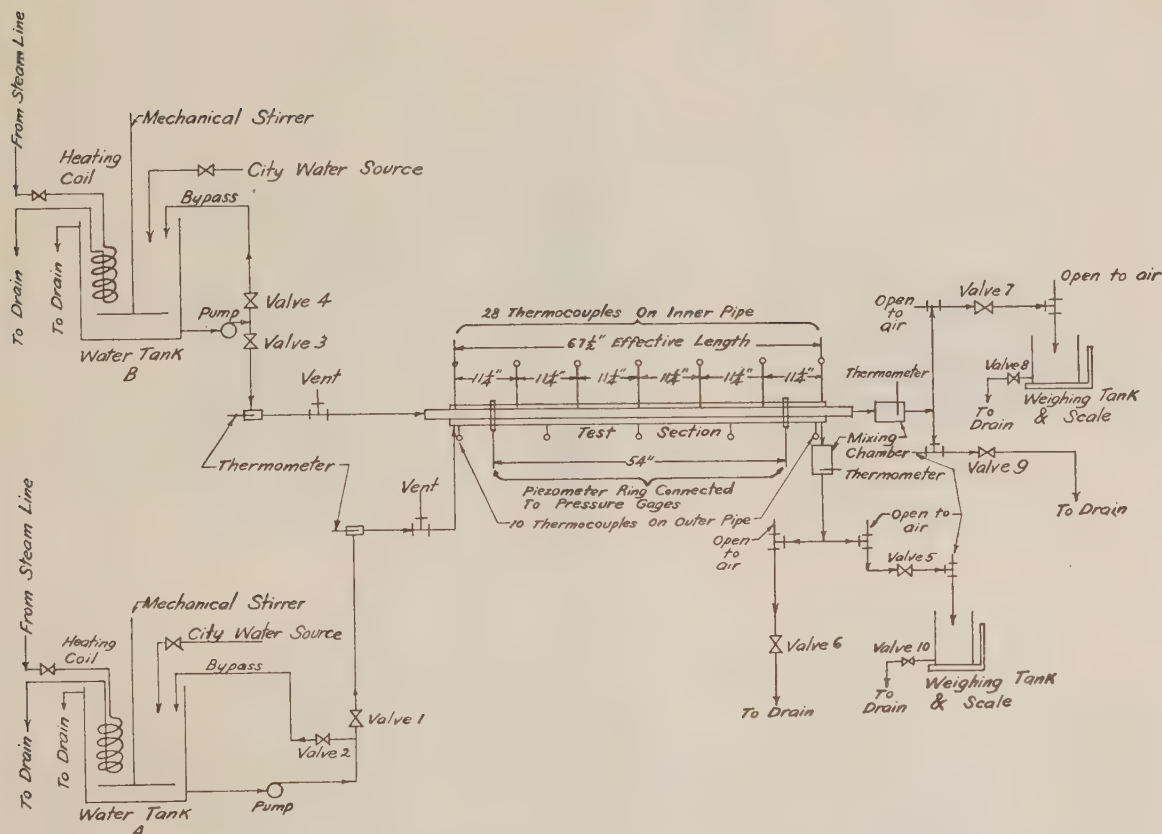 From Steam Line
Mechanical Stirrer
Heating
Coil
City Water Source
Bypass
To Drain
To Drain
Pump
Valve 4
Valve 3
Water Tank
B
Vent
Thermometer
28 Thermocouples On Inner Pipe
67½" Effective Length
11¼" 11¼" 11¼" 11¼" 11¼" 11¼"
Test Section
54"
Piezometer Ring Connected
To Pressure Gages
10 Thermocouples On Outer Pipe
Vent
Thermometer
Mixing
Chamber
Thermometer
Open
to
air
Valve 7
Open to air
Valve 8
To
Drain
Weighing Tank
& Scale
Valve 9
To Drain
Open
to
air
Open to
air
Valve 5
Valve 6
To Drain
Valve 10
To
Drain
Weighing Tank
& Scale
From Steam Line
Mechanical Stirrer
Heating
Coil
City Water Source
Bypass
To Drain
To Drain
Valve 1
Valve 2
Pump
Water Tank
A